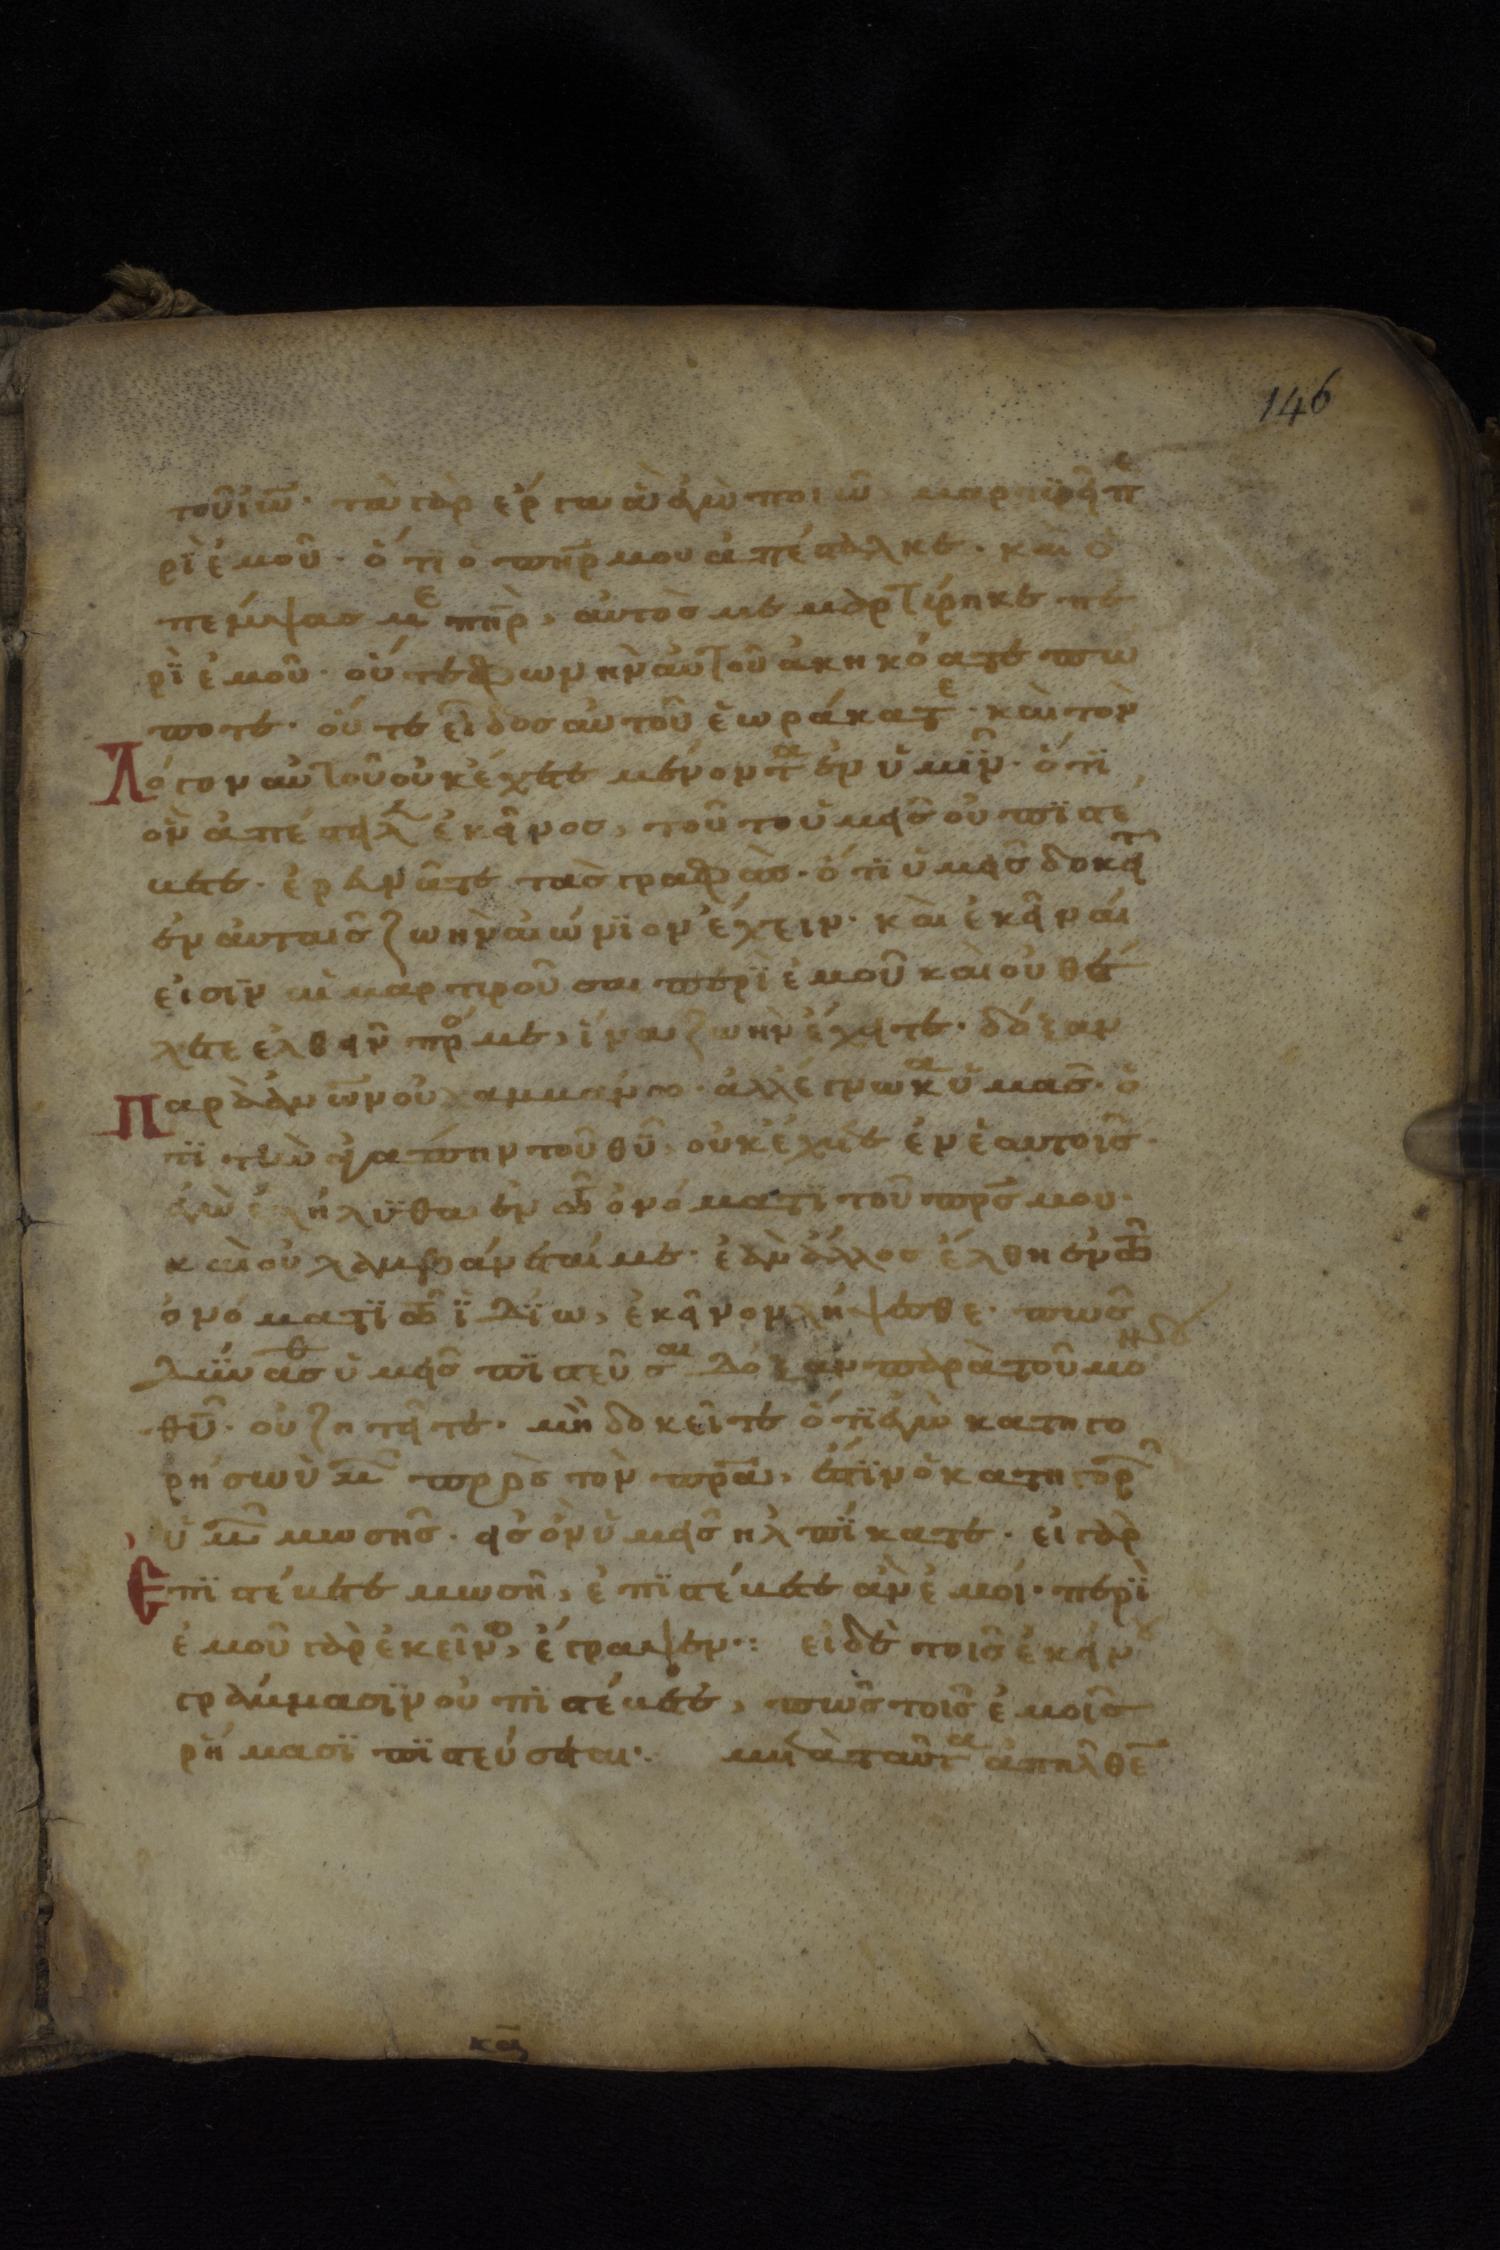 146
τοῦ ἰω̅· τὰ γὰρ ἔργα ἃ ἐγὼ ποιῶ, μαρτυρεῖ πε
ρὶ ἐμοῦ· ὅτι ὁ πη̅ρ μου ἀπέσταλκε· καὶ ὁ
πέμψας με πη̅ρ, αὐτὸς μεμαρτύρηκε πε
ρὶ ἐμοῦ· οὔτε φωνὴν αὐτοῦ ἀκηκόατε πω
ποτε· οὔτε εἶδος αὐτοῦ ἑωράκατε· καὶ τὸν
Λόγον αὐτοῦ οὐκ ἔχετε μένοντα ἐν ὑμῖν· ὅτι
ὃν ἀπέστηλεν ἐκεῖνος, τοῦτο ὑμεῖς οὐ πιστε
υετε· ἐρευνᾶτε τὰς γραφάς· ὅτι ὑμεῖς δοκεῖτε
ἐν αὐταῖς ζωὴν αἰώνιον ἔχειν· καὶ ἐκεῖναί
εἰσιν αἱ μαρτυροῦσαι περὶ ἐμοῦ καὶ οὐ θέ
λετε ἐλθεῖν πρός με, ἵνα ζωὴν ἔχητε· δόξαν
Παρὰ ἀν̅ων οὐ λαμμάνω· ἀλλ' ἔγνωκα ὑμᾶς· ὅ
τι τὴν ἀγάπην τοῦ θυ̅, οὐκ ἔχετε ἐν ἑαυτοῖς·
ἐγὼ ἐλήλυθα ἐν τῶ ὀνόματι τοῦ πρ̅ς μου·
καὶ οὐ λαμβάνεταί με· ἐὰν ἄλλος ἔλθη ἐν τῶ
ὀνόματι τῶ ἰδίω, ἐκεῖνον λήψεσθε· πῶς
δύνασθε ὑμεῖς πιστεῦσαι δόξαν παρὰ τοῦ μο
νου
θυ̅· οὐ ζητεῖτε· μὴ δοκεῖτε ὅτι ἐγὼ κατηγο
ρήσω ὑμῶν πρὸς τὸν πρ̅α, ἔστιν ὁ κατηγορῶν
ὑμῶν μωσῆς· εἰς ὃν ὑμεῖς ηλπίκατε· εἰ γὰρ
Ἐπιστέυετε μωσῆ, ἐπιστέυετε ἂν ἐμοί· περὶ
ἐμοῦ γὰρ ἐκεῖνος, ἔγραψεν·: εἰ δὲ τοῖς ἐκείνου
γράμμασιν οὐ πιστέυετε, πῶς τοῖς ἐμοῖς
ρήμασι πιστεύσεται·. μετὰ ταῦτα ἀπῆλθεν